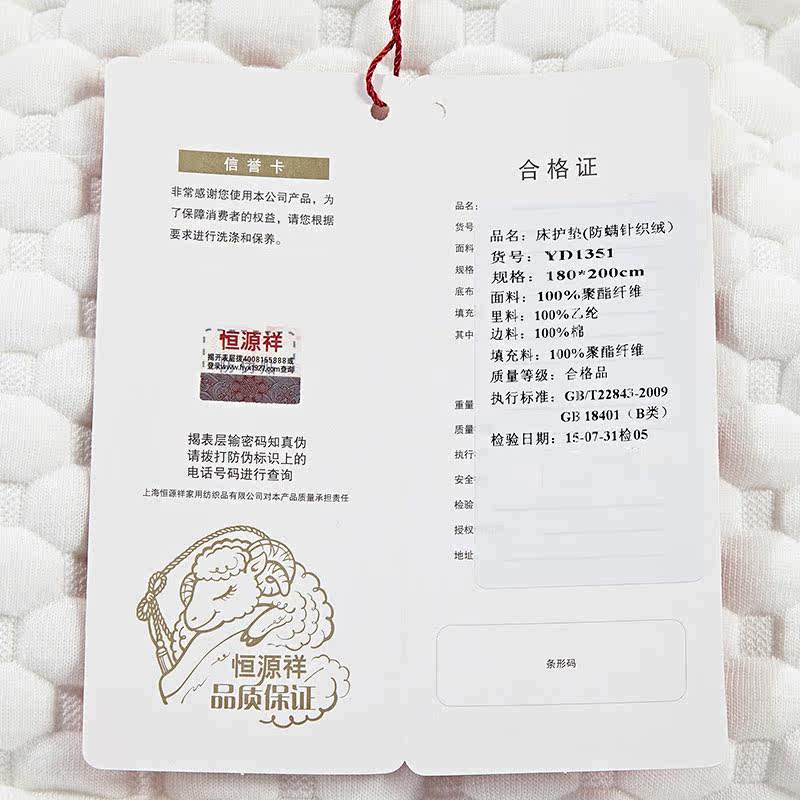 信誉卡
非常感谢您使用本公司产品，为
了保障消费者的权益，请您根据
要求进行洗涤和保养。
恒源祥
揭开表层拨4008155888或
登录www.hyx1927.com查询
揭表层输密码知真伪
请拨打防伪标识上的
电话号码进行查询
上海恒源祥家用纺织品有限公司对本产品质量承担责任
恒源祥
品质保证
合格证
品名：
货号
面料
规格
底布
填充
其中
重量
质量
执行
安全
检验
授权
地址
品名：床护垫(防螨针织绒）
货号：YD1351
规格：180*200cm
面料：100%聚酯纤维
里料：100%乙纶
边料：100%棉
填充料：100%聚酯纤维
质量等级：合格品
执行标准：GB/T22843-2009
GB 18401（B类）
检验日期：15-07-31检05
条形码